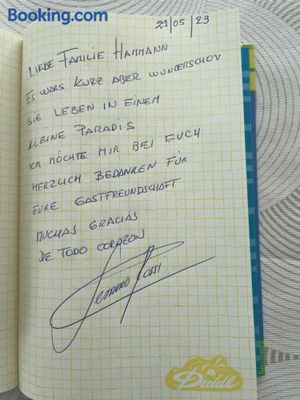 Booking.com
21/05/23
LIEBE FAMILIE HAMMANN
ES WARS KURZ ABER WUNDERSCHON
SIE LEBEN IN EINEM
KLEINE PARADIS
ICH MÖCHTE MIR BEI EUCH
HERZLICH BEDANKEN FÜR
EURE GASTFREUNDSCHAFT
MUCHAS GRACIAS
DE TODO CORAZON
Diddl